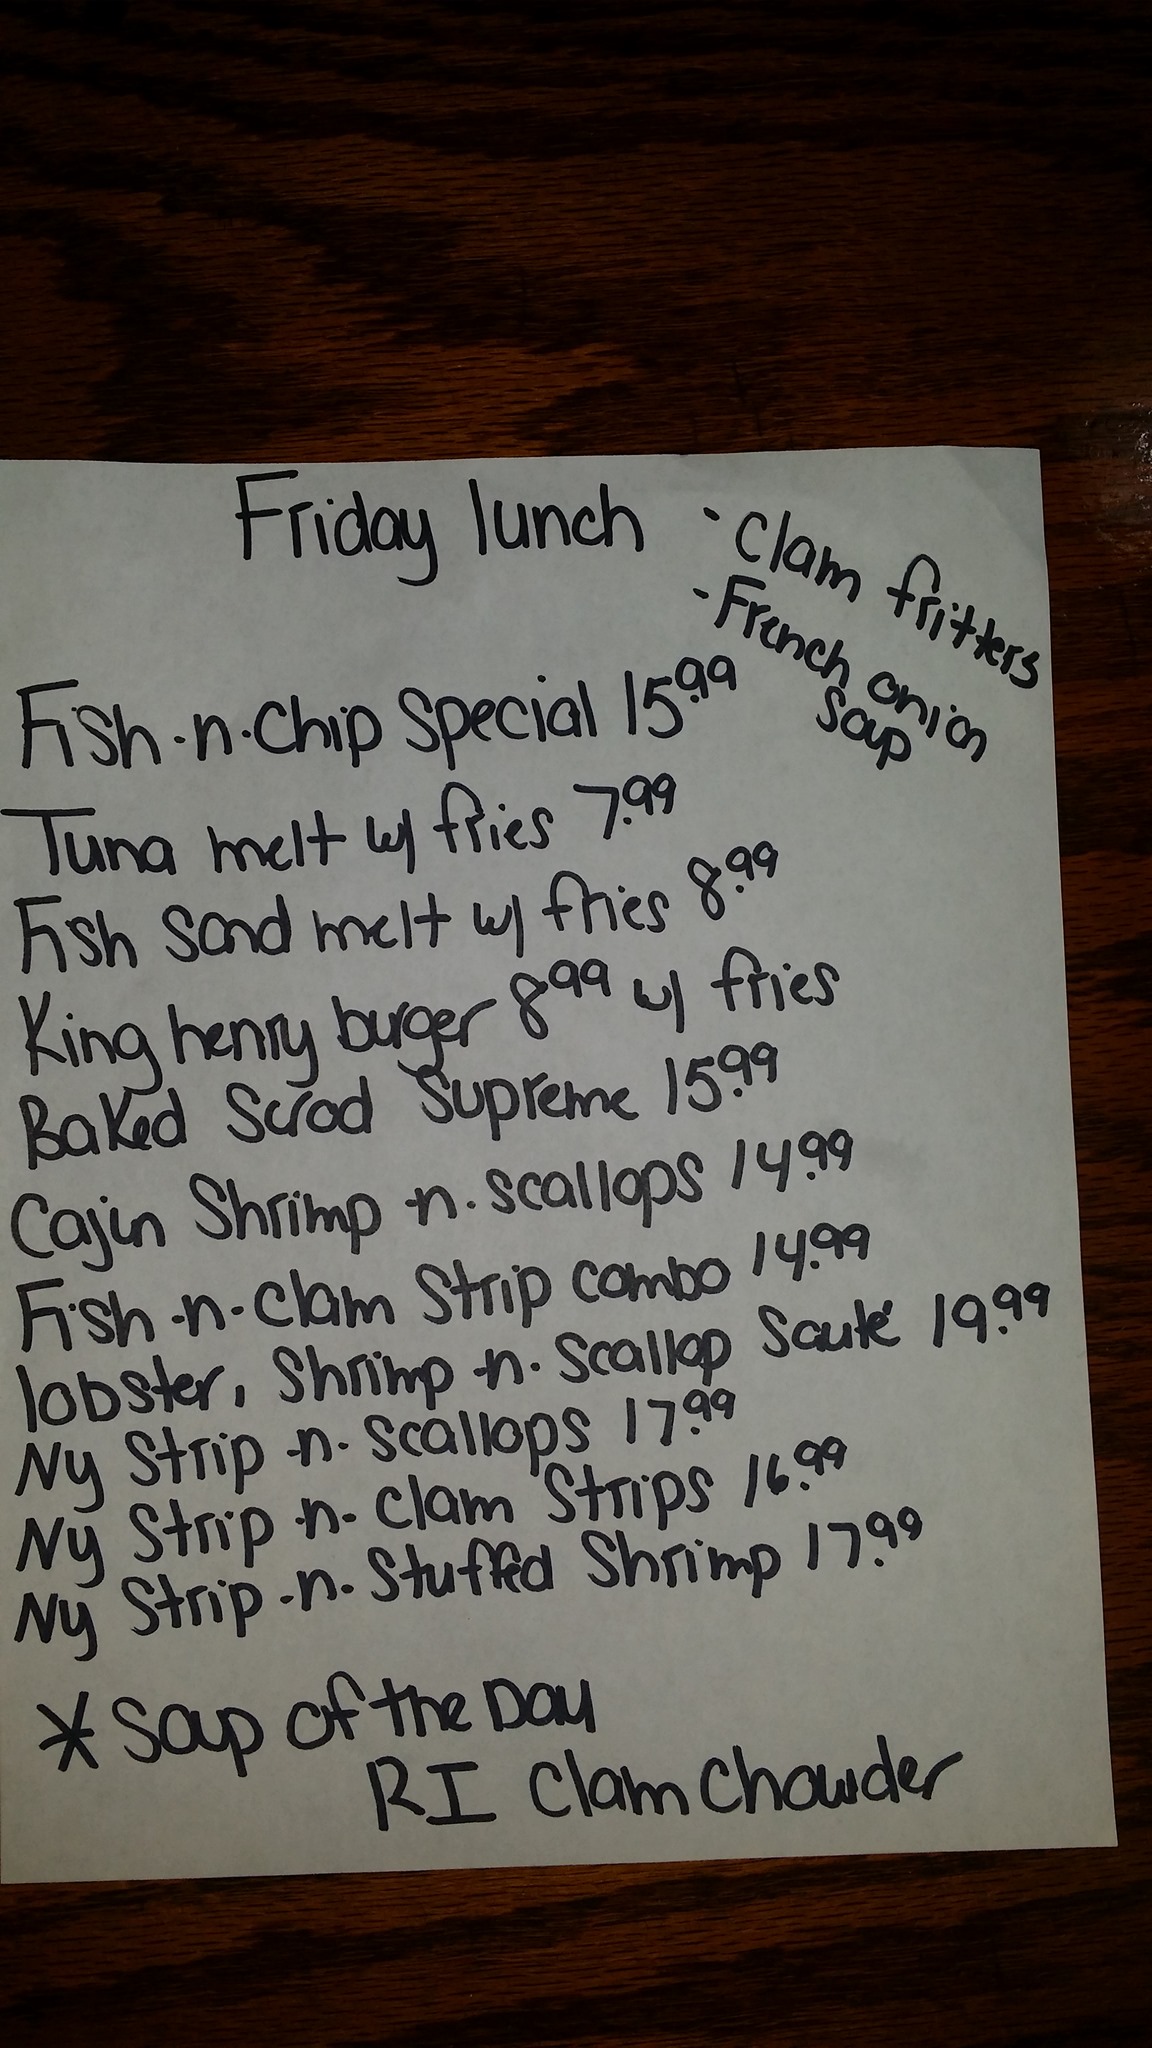 Friday lunch
· Clam fritters
· French onion
Soup
Fish-n-Chip Special 15.99
Tuna melt w/ fries 7.99
Fish Sand melt w/ fries 8.99
King henry burger 8.99 w/ fries
Baked Scrod Supreme 15.99
Cajun Shrimp -n- Scallops 14.99
Fish -n- Clam Strip combo 14.99
lobster, Shrimp -n- Scallop Sauté 19.99
Ny Strip -n- Scallops 17.99
Ny Strip -n- Clam Strips 16.99
Ny Strip -n- Stuffed Shrimp 17.99
* Soup of the Day
RI Clam Chowder